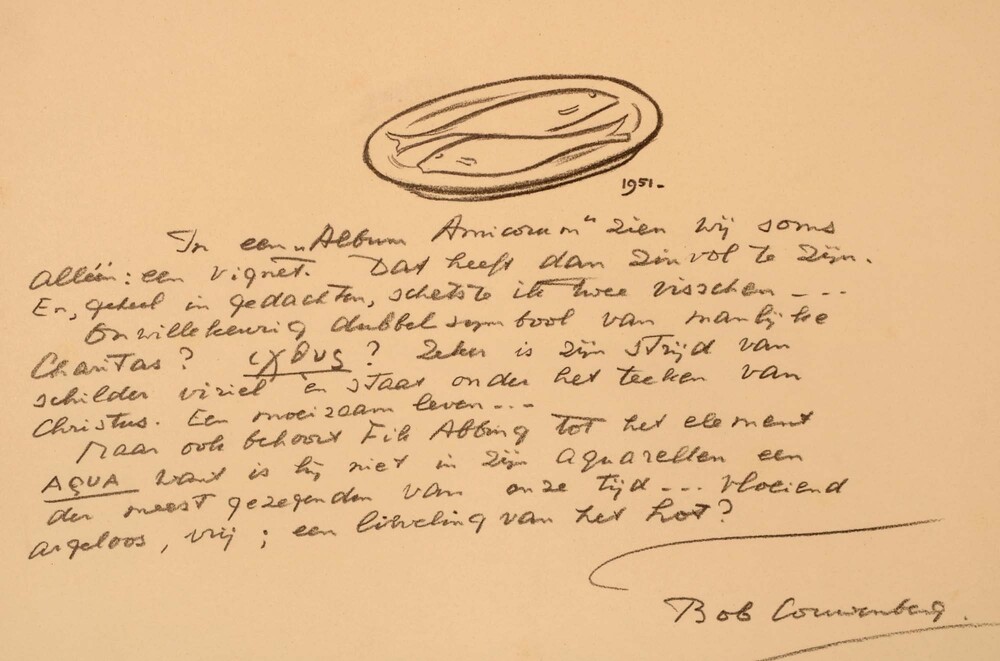 1951-
In een „Album Amicorum" zien wij soms
alléén: een vignet. Dat heeft dan zinvol te zijn.
En, geheel in gedachten, schetste ik twee visschen ---
Onwillekeurig dubbelsymbool van manlijke
Charitas? ιχθυς? Zeker is zijn strijd van
schilder viriel èn staat onder het teeken van
Christus. Een moeizaam leven ---
Maar ook behoort Fik Abbing tot het element
AQUA want is hij niet in zijn aquarellen een
der meest gezegenden van onze tijd --- vloeiend
argeloos, vrij; een lieveling van het lot?
Bob Couwenberg.